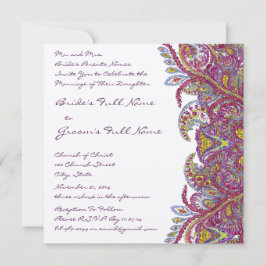 Mr. and Mrs.
Bride's Parents Names
Invite You to Celebrate the
Marriage of Their Daughter
Bride's Full Name
to
Groom's Full Name
Church of Christ
100 Church Street
City, State
November 21, 2014
three o'clock in the afternoon
Reception To Follow
Please R.S.V.P. By 11.01.14